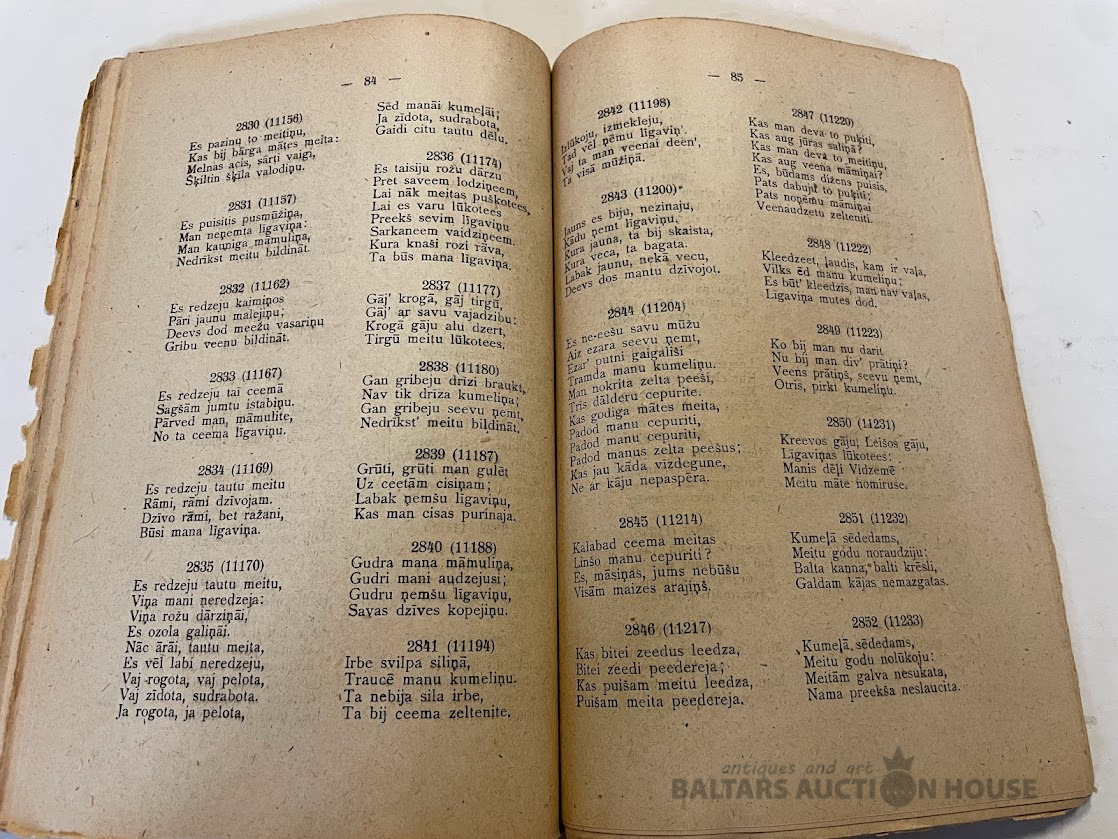 — 84 —
2830 (11156)
Es pazinu to meitiņu,
Kas bij bārga mātes meita:
Melnas acis, sārti vaigi,
Šķiltin šķila valodiņu.
2831 (11157)
Es puisītis pusmūžiņa,
Man neņemta līgaviņa:
Man kauniga māmuliņa,
Nedrīkst meitu bildināt.
2832 (11162)
Es redzeju kaimiņos
Pāri jaunu malejiņu;
Deevs dod meežu vasariņu
Gribu veenu bildināt.
2833 (11167)
Es redzeju tai ceemā
Sagšām jumtu istabiņu.
Pārved man, māmulite,
No ta ceema līgaviņu.
2834 (11169)
Es redzeju tautu meitu
Rāmi, rāmi dzīvojam.
Dzīvo rāmi, bet ražani,
Būsi mana līgaviņa.
2835 (11170)
Es redzeju tautu meitu,
Viņa mani neredzeja:
Viņa rožu dārziņāi,
Es ozola galiņāi.
Nāc ārāi, tautu meita,
Es vēl labi neredzeju,
Vaj rogota, vaj pelota,
Vaj zīdota, sudrabota.
Ja rogota, ja pelota,
Sēd manāi kumeļāi;
Ja zīdota, sudrabota,
Gaidi citu tautu dēlu.
2836 (11174)
Es taisiju rožu dārzu
Pret saveem lodziņeem,
Lai nāk meitas pušķotees,
Lai es varu lūkotees
Preekš sevim līgaviņu
Sarkaneem vaidziņeem.
Kura knaši rozi rāva,
Ta būs mana līgaviņa.
2837 (11177)
Gāj' krogā, gāj tirgū,
Gāj' ar savu vajadzību:
Krogā gāju alu dzert,
Tirgū meitu lūkotees.
2838 (11180)
Gan gribeju drīzi braukt,
Nav tik drīza kumeliņa;
Gan gribeju seevu ņemt,
Nedrīkst' meitu bildināt.
2839 (11187)
Grūti, grūti man gulēt
Uz ceetām cisiņam;
Labak ņemšu līgaviņu,
Kas man cisas purinaja.
2840 (11188)
Gudra mana māmuliņa,
Gudri mani audzejusi;
Gudru ņemšu līgaviņu,
Savas dzīves kopejiņu.
2841 (11194)
Irbe svilpa siliņā,
Traucē manu kumeliņu.
Ta nebija sila irbe,
Ta bij ceema zeltenite.
— 85 —
2842 (11198)
Izlūkoju, izmekleju,
Tad vēl ņemu līgaviņ'.
Vaj ta man veenai deen',
Ta visā mūžiņā.
2843 (11200)
Jauns es biju, nezinaju,
Kādu ņemt līgaviņu.
Kura jauna, ta bij skaista,
Kura veca, ta bagata.
Labak jaunu, nekā vecu,
Deevs dos mantu dzīvojot.
2844 (11204)
Es ne-eešu savu mūžu
Aiz ezara seevu ņemt,
Ezar' putni gaigališi
Tramda manu kumeliņu.
Man nokrita zelta peeši,
Tris dālderu cepurite.
Kas godīga mātes meita,
Padod manu cepuriti,
Padod manu cepuriti,
Padod manus zelta peešus;
Kas jau kāda vizdegune,
Ne ar kāju nepaspēra.
2845 (11214)
Kalabad ceema meitas
Linšo manu cepuriti?
Es, māsiņas, jums nebūšu
Visām maizes arajiņš.
2846 (11217)
Kas bitei zeedus leedza,
Bitei zeedi peedereja;
Kas puišam meitu leedza,
Puišam meita peedereja.
2847 (11220)
Kas man deva to puķiti,
Kas aug jūras saliņā?
Kas man deva to meitiņu,
Kas aug veena māmiņai?
Es, būdams dižens puisis,
Pats dabuju to puķiti;
Pats noņēmu māmiņai
Veenaudzetu zelteniti.
2848 (11222)
Kleedzeet, ļaudis, kam ir vaļa,
Vilks ēd manu kumeliņu;
Es būt' kleedzis, man nav vaļas,
Līgaviņa mutes dod.
2849 (11223)
Ko bij man nu darit
Nu bij man div' prātiņi?
Veens prātiņš, seevu ņemt,
Otris, pirkt kumeliņu.
2850 (11231)
Kreevos gāju, Leišos gāju,
Līgaviņas lūkotees;
Manis dēļi Vidzemē
Meitu māte nomiruse.
2851 (11232)
Kumeļā sēdedams,
Meitu godu noraudziju:
Balta kanna, balti krēsli,
Galdam kājas nemazgatas.
2852 (11233)
Kumeļā, sēdedams,
Meitu godu nolūkoju:
Meitām galva nesukata,
Nama preekša neslaucita.
antiques and art
BALTARS AUCTION HOUSE